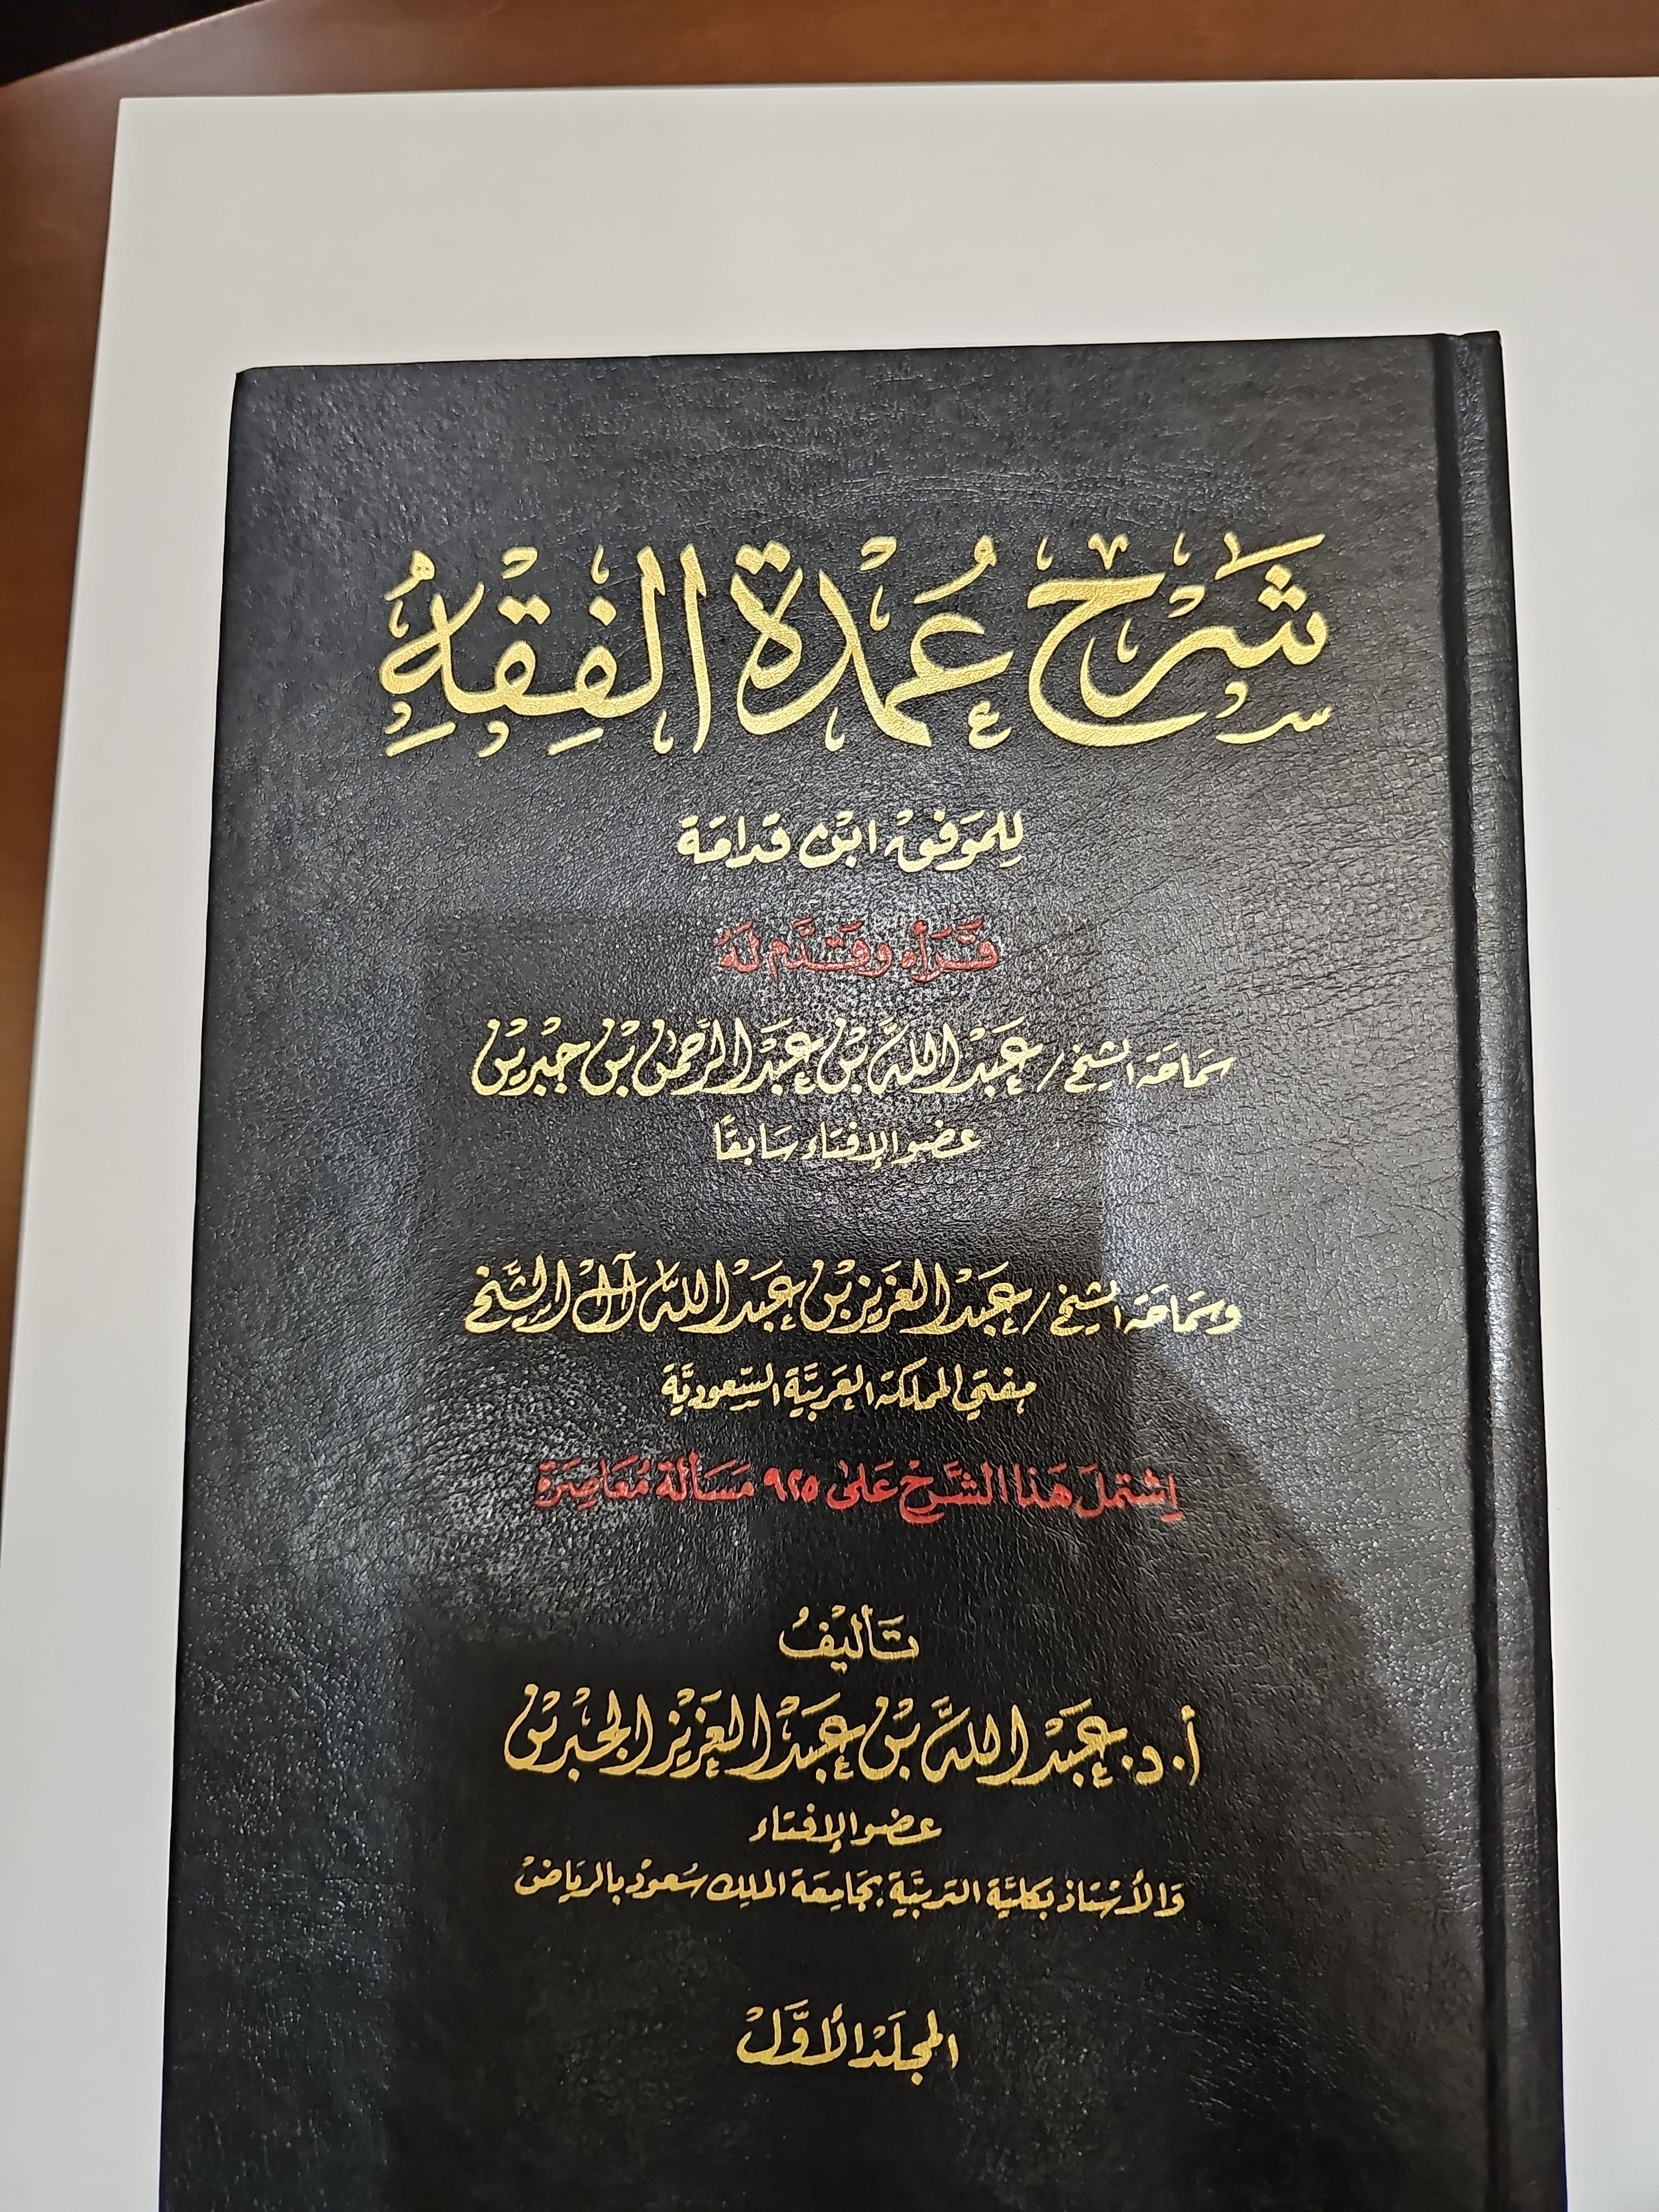 شرح عمدة الفقه
للموفق ابن قدامة
قرأه وقدم له
سماحة الشيخ / عبد الله بن عبد الرحمن بن جبرين
عضو الإفتاء سابقًا
وسماحة الشيخ / عبد العزيز بن عبد الله آل الشيخ
مفتي المملكة العربية السعودية
اشتمل هذا الشرح على ٩٢٥ مسألة معاصرة
تأليف
أ. د. عبد الله بن عبد العزيز الجبرين
عضو الإفتاء
والأستاذ بكلية التربية بجامعة الملك سعود بالرياض
المجلد الأول